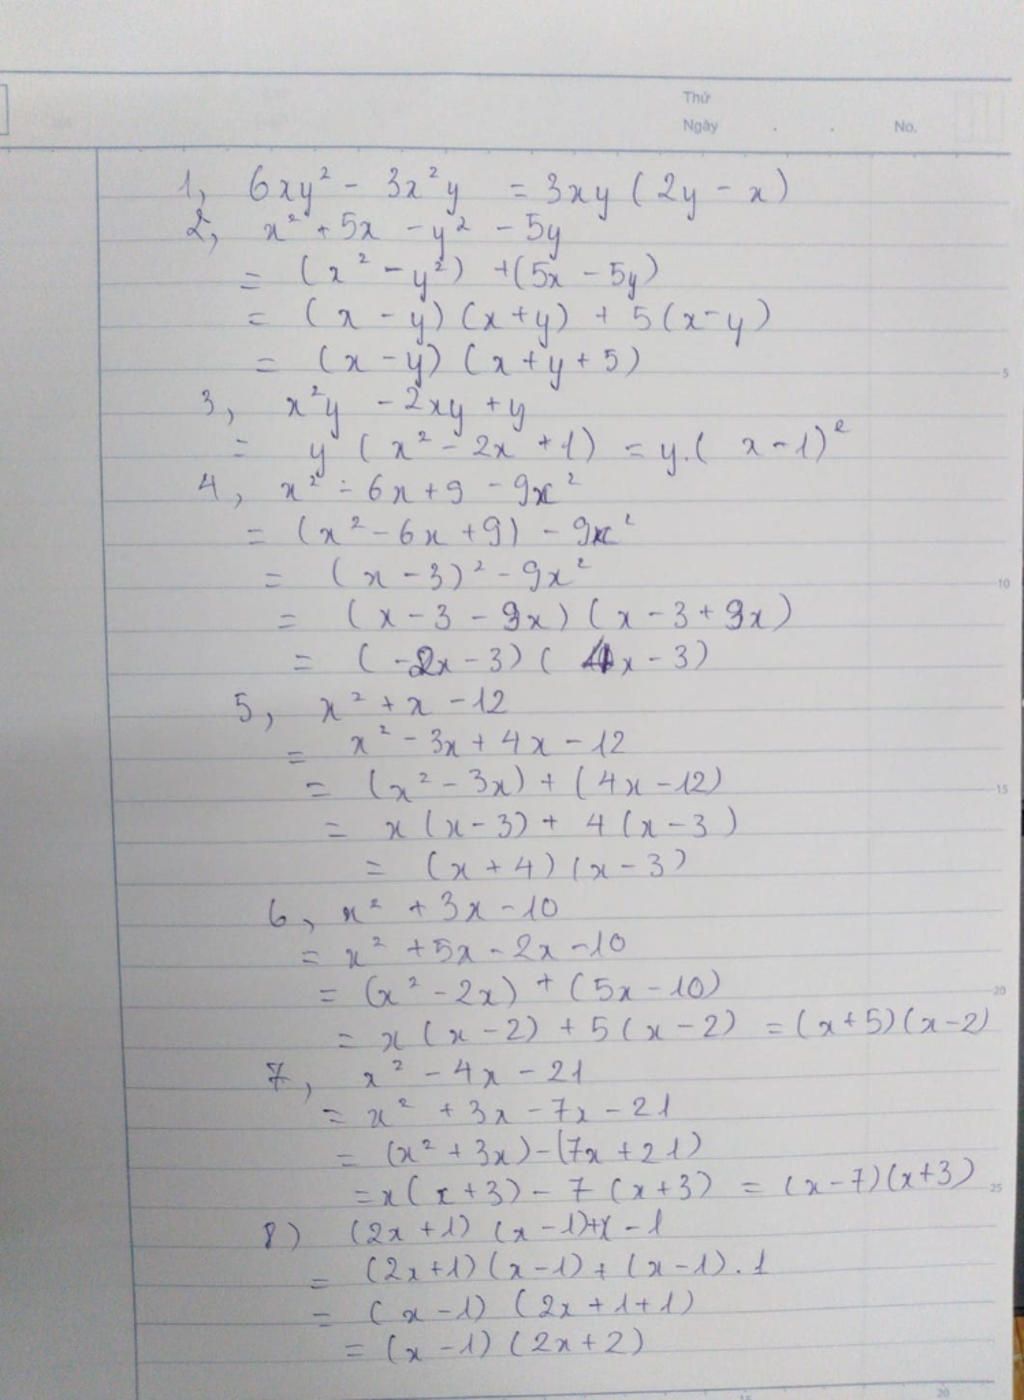 Thứ
Ngày . . No.
1, 6xy² - 3x²y = 3xy (2y - x)
2, x² + 5x - y² - 5y
= (x² - y²) + (5x - 5y)
= (x - y) (x + y) + 5 (x - y)
= (x - y) (x + y + 5)
5
3, x²y - 2xy + y
= y (x² - 2x + 1) = y. (x - 1)²
4, x² - 6x + 9 - 9x²
= (x² - 6x + 9) - 9x²
= (x - 3)² - 9x²
10
= (x - 3 - 3x) (x - 3 + 3x)
= (-2x - 3) (4x - 3)
5, x² + x - 12
= x² - 3x + 4x - 12
= (x² - 3x) + (4x - 12)
15
= x (x - 3) + 4 (x - 3)
= (x + 4) (x - 3)
6, x² + 3x - 10
= x² + 5x - 2x - 10
= (x² - 2x) + (5x - 10)
20
= x (x - 2) + 5 (x - 2) = (x + 5) (x - 2)
7, x² - 4x - 21
= x² + 3x - 7x - 21
= (x² + 3x) - (7x + 21)
= x (x + 3) - 7 (x + 3) = (x - 7) (x + 3)
25
8) (2x + 1) (x - 1) + x - 1
= (2x + 1) (x - 1) + (x - 1) . 1
= (x - 1) (2x + 1 + 1)
= (x - 1) (2x + 2)
15 20